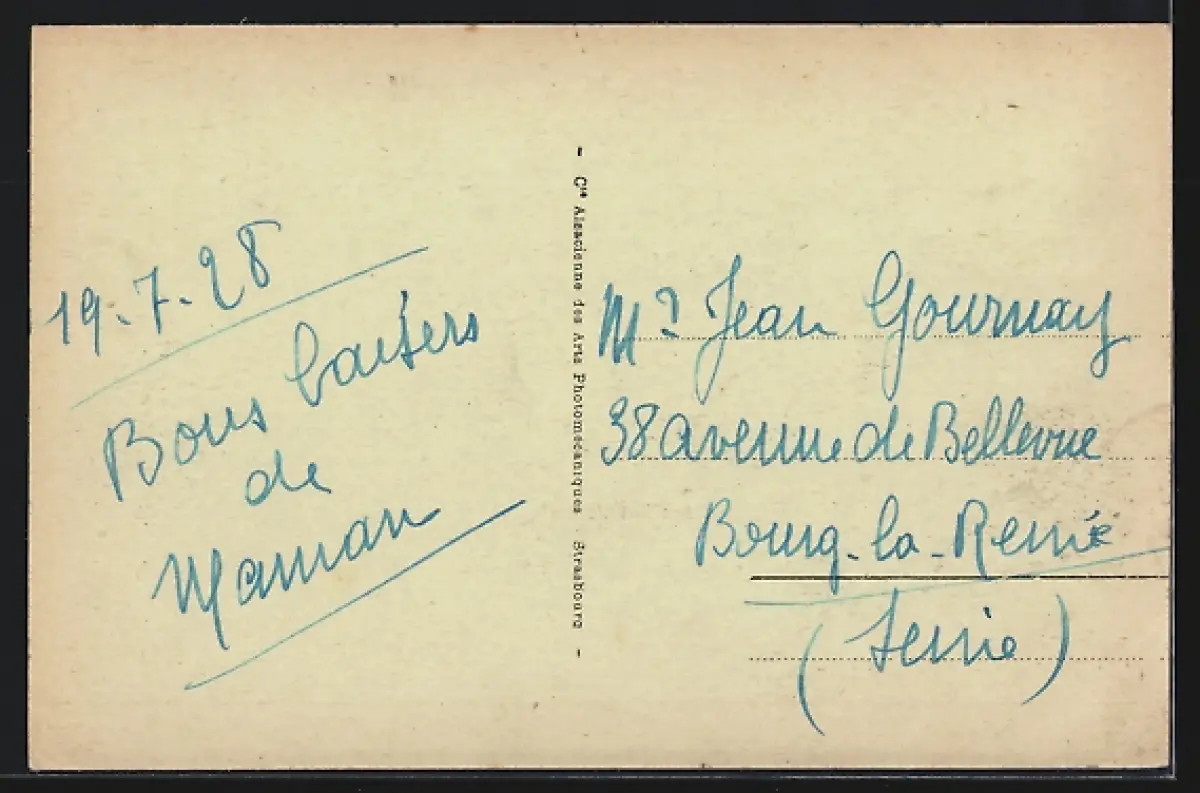 19.7.28
Bons baisers
de
Maman
- Cie Alsacienne des Arts Photomécaniques - Strasbourg -
Mr Jean Gournay
38 avenue de Bellevue
Bourg-la-Reine
(Seine)